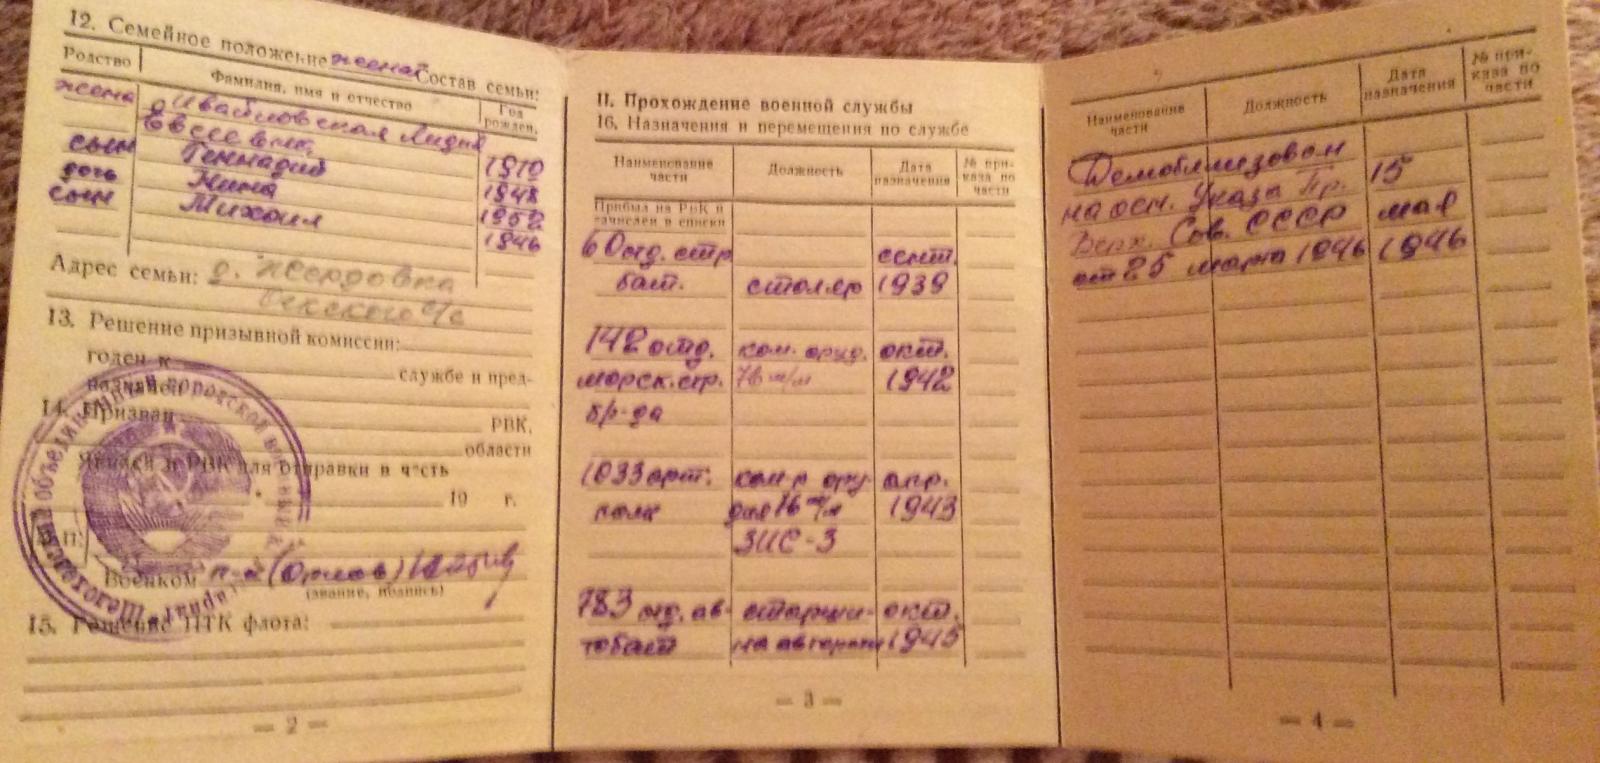 12. Семейное положение женат Состав семьи:
Родство Фамилия, имя и отчество Год рожден.
жена Лидия
1910
сын Геннадий 1948
дочь Нина 1952
сын Михаил 1946
Адрес семьи: д.
13. Решение призывной комиссии:
годен к службе и пред-
назначен
14. Призван РВК,
области
Явился в РВК для отправки в часть
19 г.
М.П.
Военком п-к (Орлов)
(звание, подпись)
15. Решение ПТК флота:
— 2 —
II. Прохождение военной службы
16. Назначения и перемещения по службе
Наименование части Должность Дата назначения № приказа по части
Прибыл на РВК и
зачислен в списки
60 отд. стр сент.
бат. столяр 1939
142 отд. ком. оруд. окт.
морск. стр. 76 м/м 1942
бр-да
1033 арт. ком-р ору- апр.
полк дия 76 м/м 1943
ЗИС-3
783 отд. ав- старши- окт.
тобат на авторот 1945
— 3 —
Наименование части Должность Дата назначения № приказа по части
Демобилизован
на осн. Указа Пр. 15
Верх. Сов. СССР мая
от 25 марта 1946 1946
— 4 —